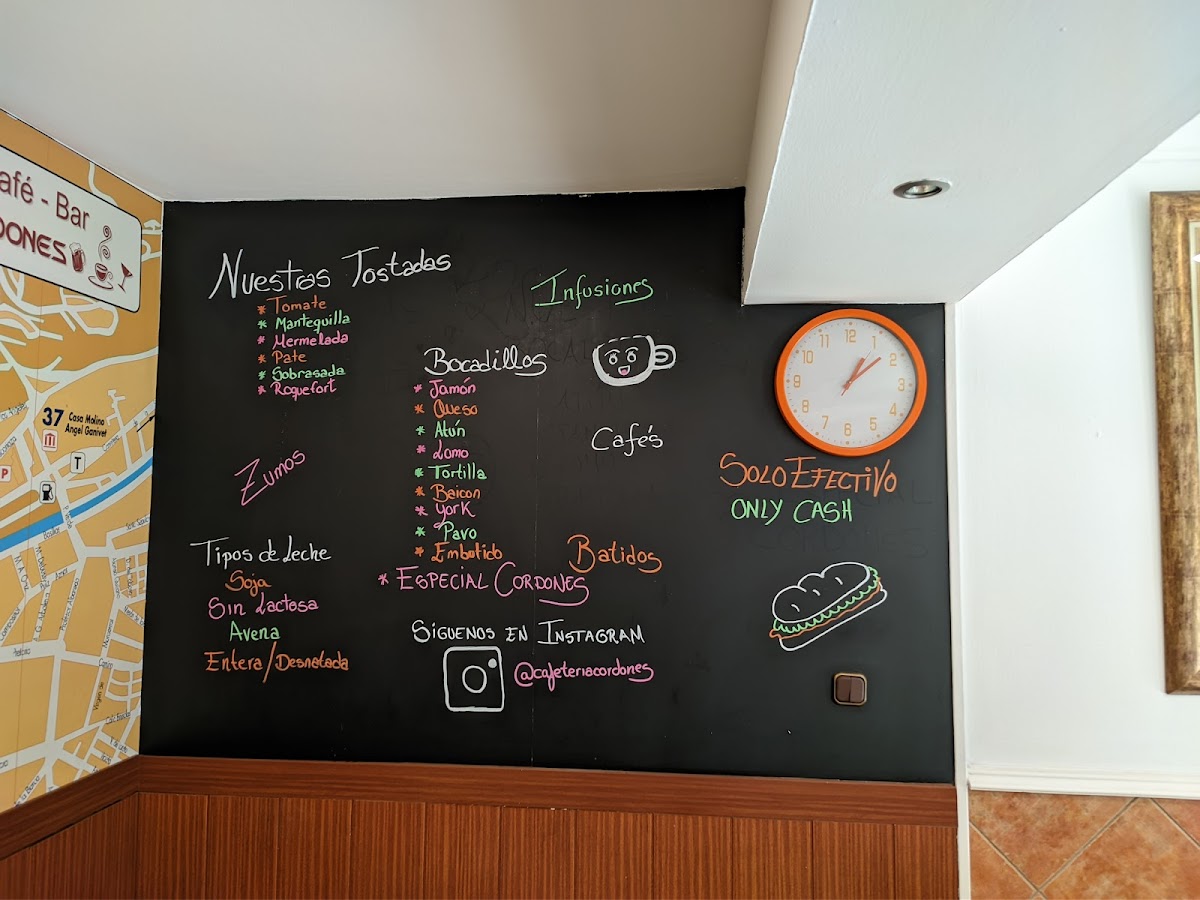 afé - Bar
DONES
37 Casa Molino
Angel Ganivet
T
P
Nuestras Tostadas
* Tomate
* Mantequilla
* Mermelada
* Pate
* Sobrasada
* Roquefort
Zumos
Tipos de Leche
Soja
Sin Lactosa
Avena
Entera/Desnatada
Bocadillos
* Jamón
* Queso
* Atún
* Lomo
* Tortilla
* Baicon
* York
* Pavo
* Embutido
* Especial Cordones
Infusiones
Cafés
Batidos
Síguenos en Instagram
@cafeteriacordones
12
1
2
3
4
5
6
7
8
9
10
11
Solo Efectivo
ONLY CASH